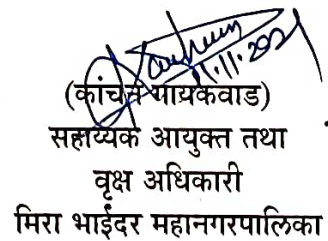 11.11.2021
(कांचन गायकवाड)
सहाय्यक आयुक्त तथा
वृक्ष अधिकारी
मिरा भाईंदर महानगरपालिका